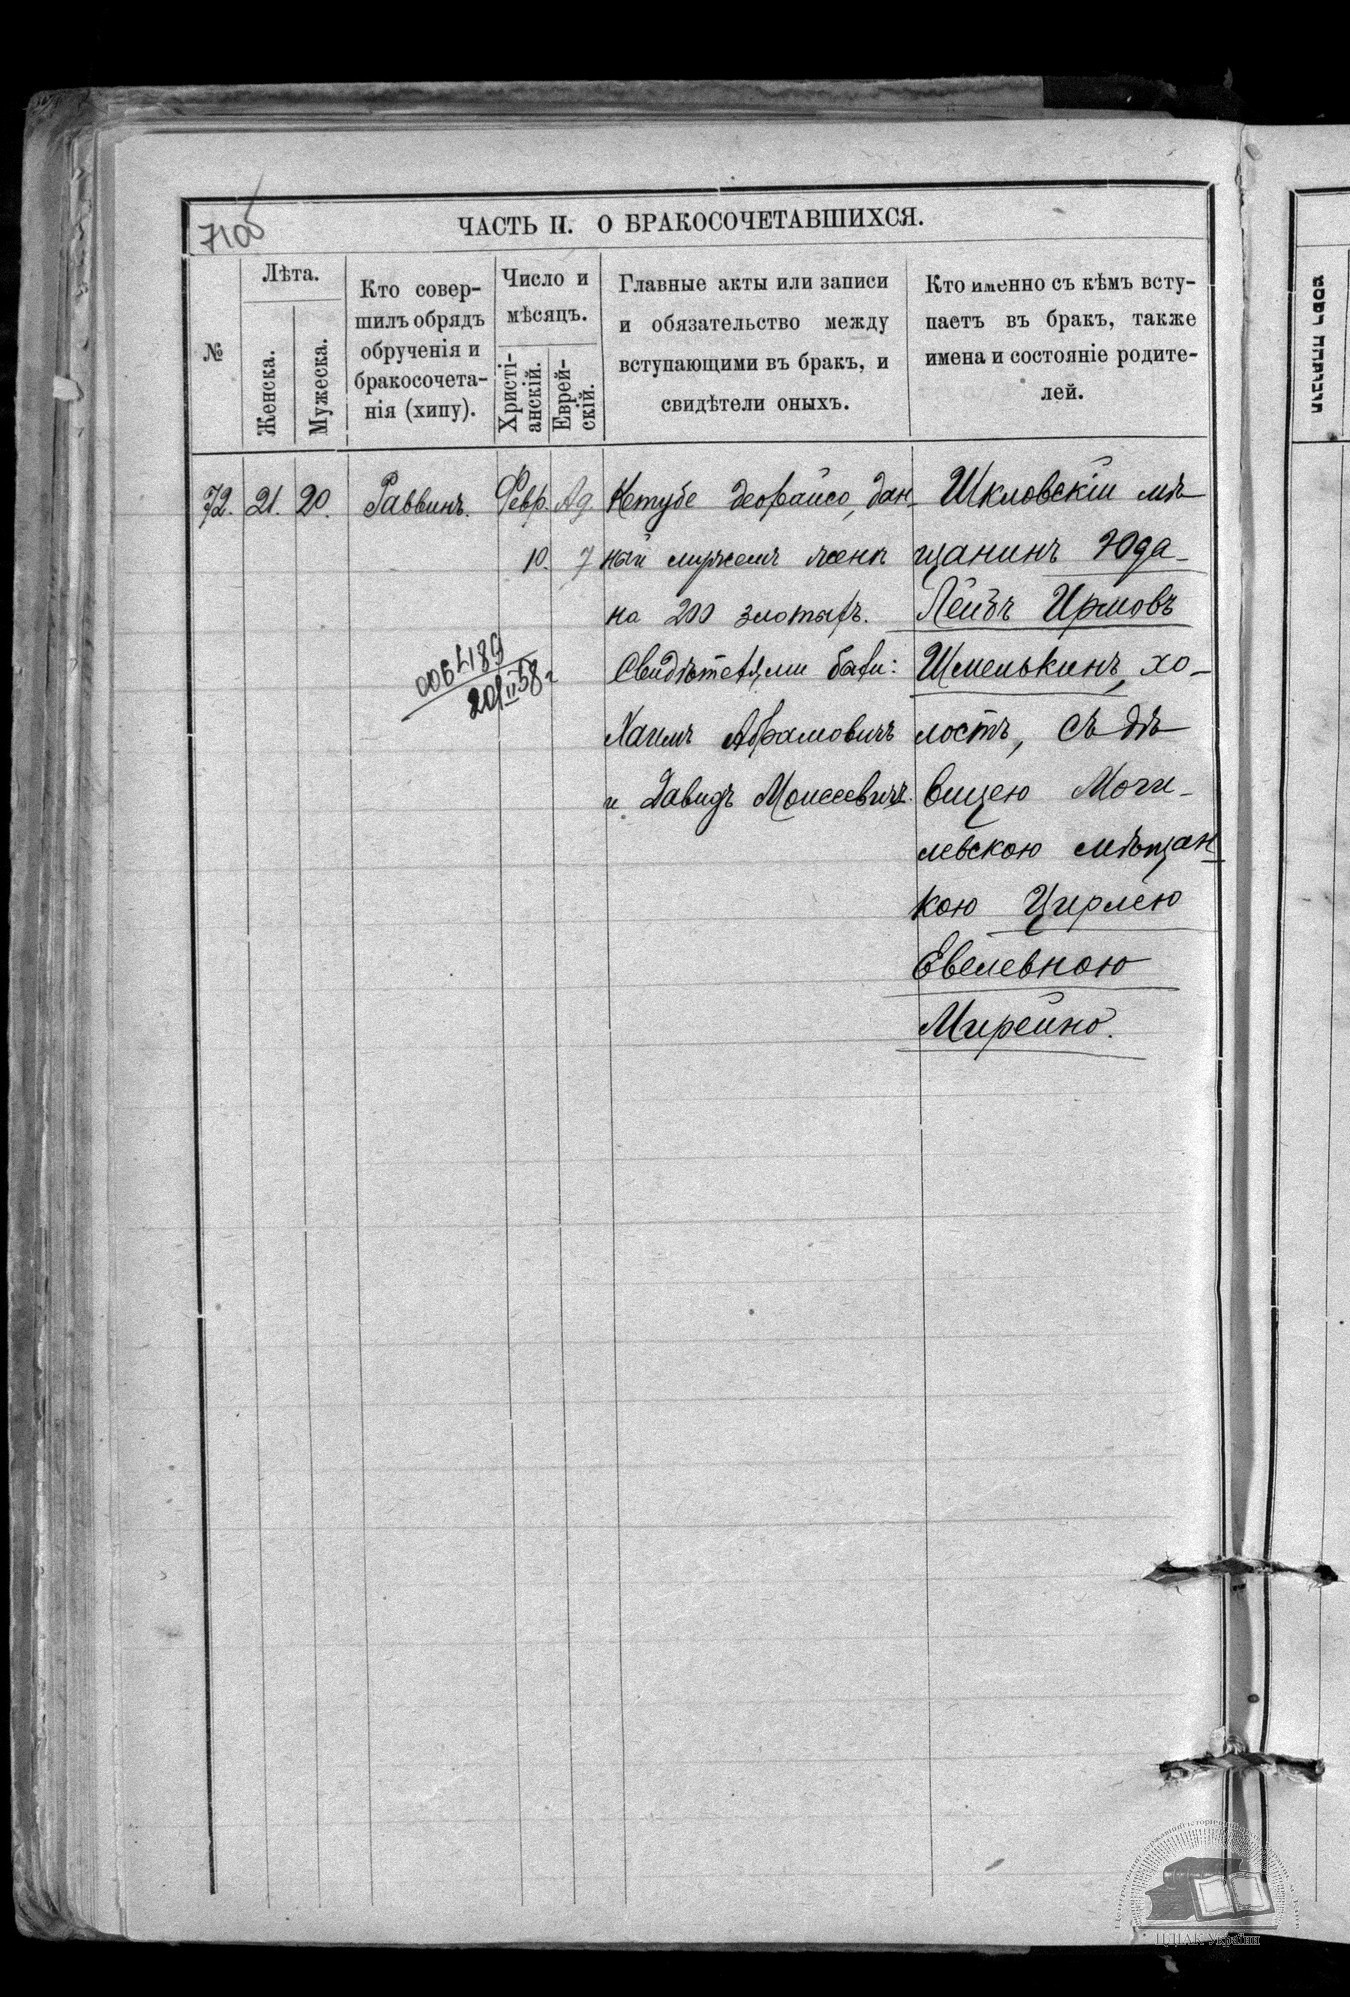 7105
ЧАСТЬ II. О БРАКОСОЧЕТАВШИХСЯ.
№
Лѣта.
Женска.
Мужеска.
Кто совер-
шилъ обрядъ
обрученія и
бракосочета-
нія (хипу).
Число и
мѣсяцъ.
Христі-
анскій.
Еврей-
скій.
Главные акты или записи
и обязательство между
вступающими въ бракъ, и
свидѣтели оныхъ.
Кто именно съ кѣмъ всту-
паетъ въ бракъ, также
имена и состояніе родите-
лей.
72. 21. 20. Раввинъ. Февр. Ад.
10. 7
Кетубе деорайсо, дан-
ный мужемъ женѣ
на 200 злотыхъ.
Свидѣтелями были:
Хаимъ Абрамовичъ
и Давидъ Моисеевичъ.
Шкловскій мѣ-
щанинъ Юда-
Лейбъ Ирмовъ
Шменькинъ, хо-
лостъ, съ дѣ-
вицею Моги-
левскою мѣщан-
кою Цирлею
Евелевною
Мирейно.
006489
20/II 58 г
ЦДІАК України